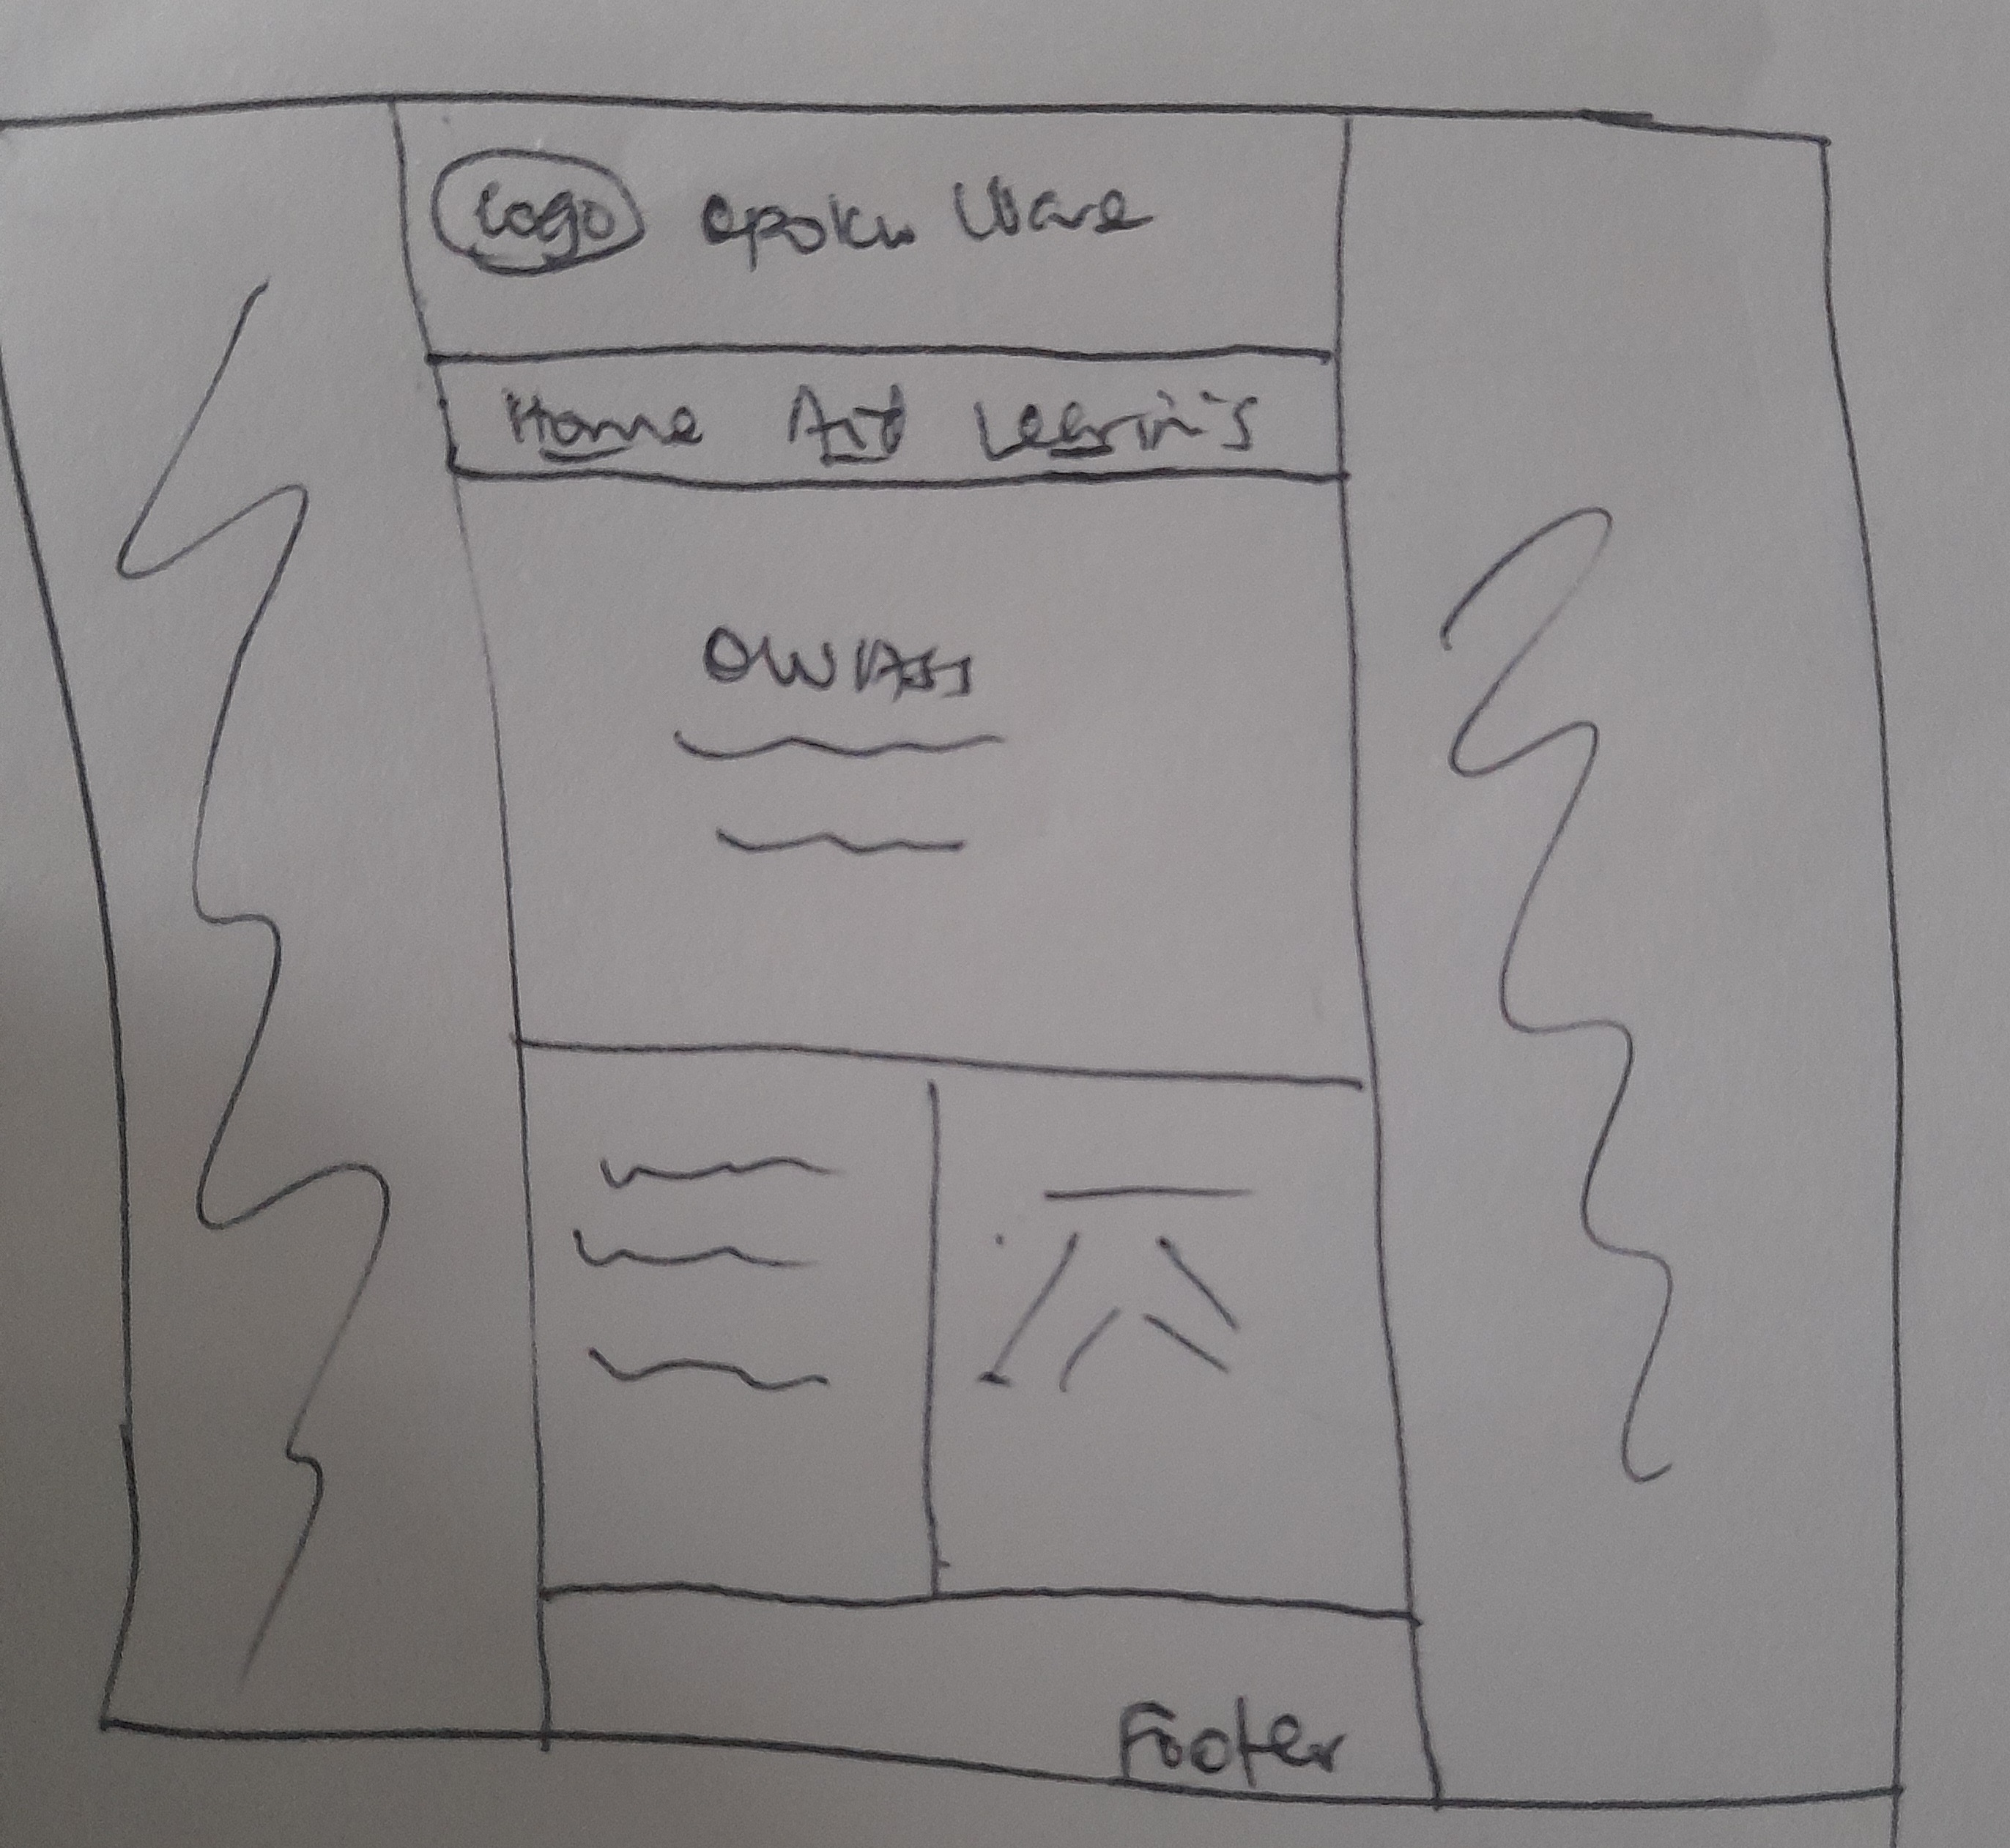 Logo opoku Ware
Home Art Learning
OWASS
Footer